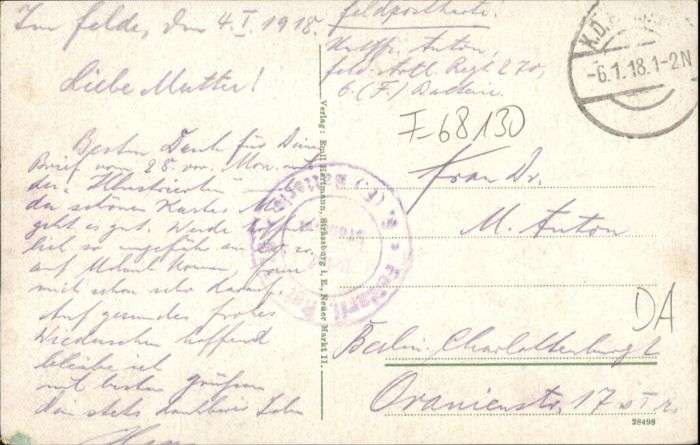 Im Felde, den 4.I.1918.
Liebe Mutter!
Besten Dank für Deinen
Brief vom 28. vor. Mon. mit
den Illustrierten und
der schönen Karte. Mir
geht es gut. Werde hoffent-
lich so ungefähr am
auf Urlaub kommen, freue
mich schon sehr darauf.
Auf gesundes frohes
Wiedersehen hoffend
bleibe ich
mit besten Grüßen
Dein stets dankbarer Sohn
Verlag: Emil Hartmann, Straßburg i. E., Neuer Markt 11.
Feldpostkarte.
Anton,
Feld-Artl. Regt 270,
6. (F.)
K.D.
-6.1.18.1-2N
F-68130
Frau Dr.
M. Anton
DA
Berlin Charlottenburg 1
Oranienstr. 17
28498